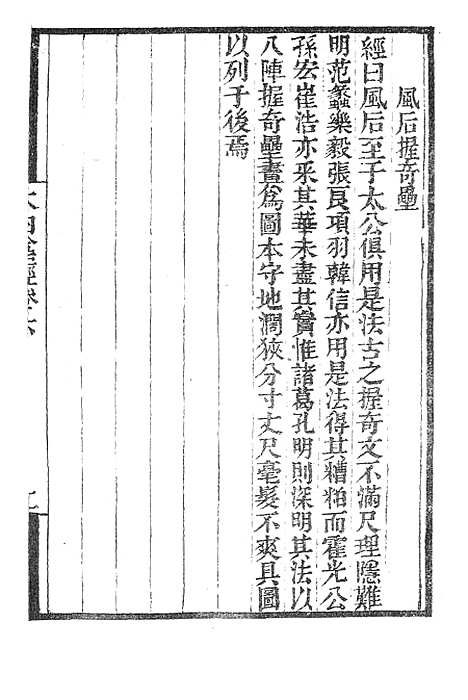 風后握奇壘
經曰風后至于太公俱用是法古之握奇文不滿尺理隱難
明范蠡樂毅張良項羽韓信亦用是法得其糟粕而霍光公
孫宏崔浩亦采其華未盡其實惟諸葛孔明則深明其法以
八陣握奇壘畫為圖本守地濶狹分寸丈尺毫髮不爽具圖
以列于後焉